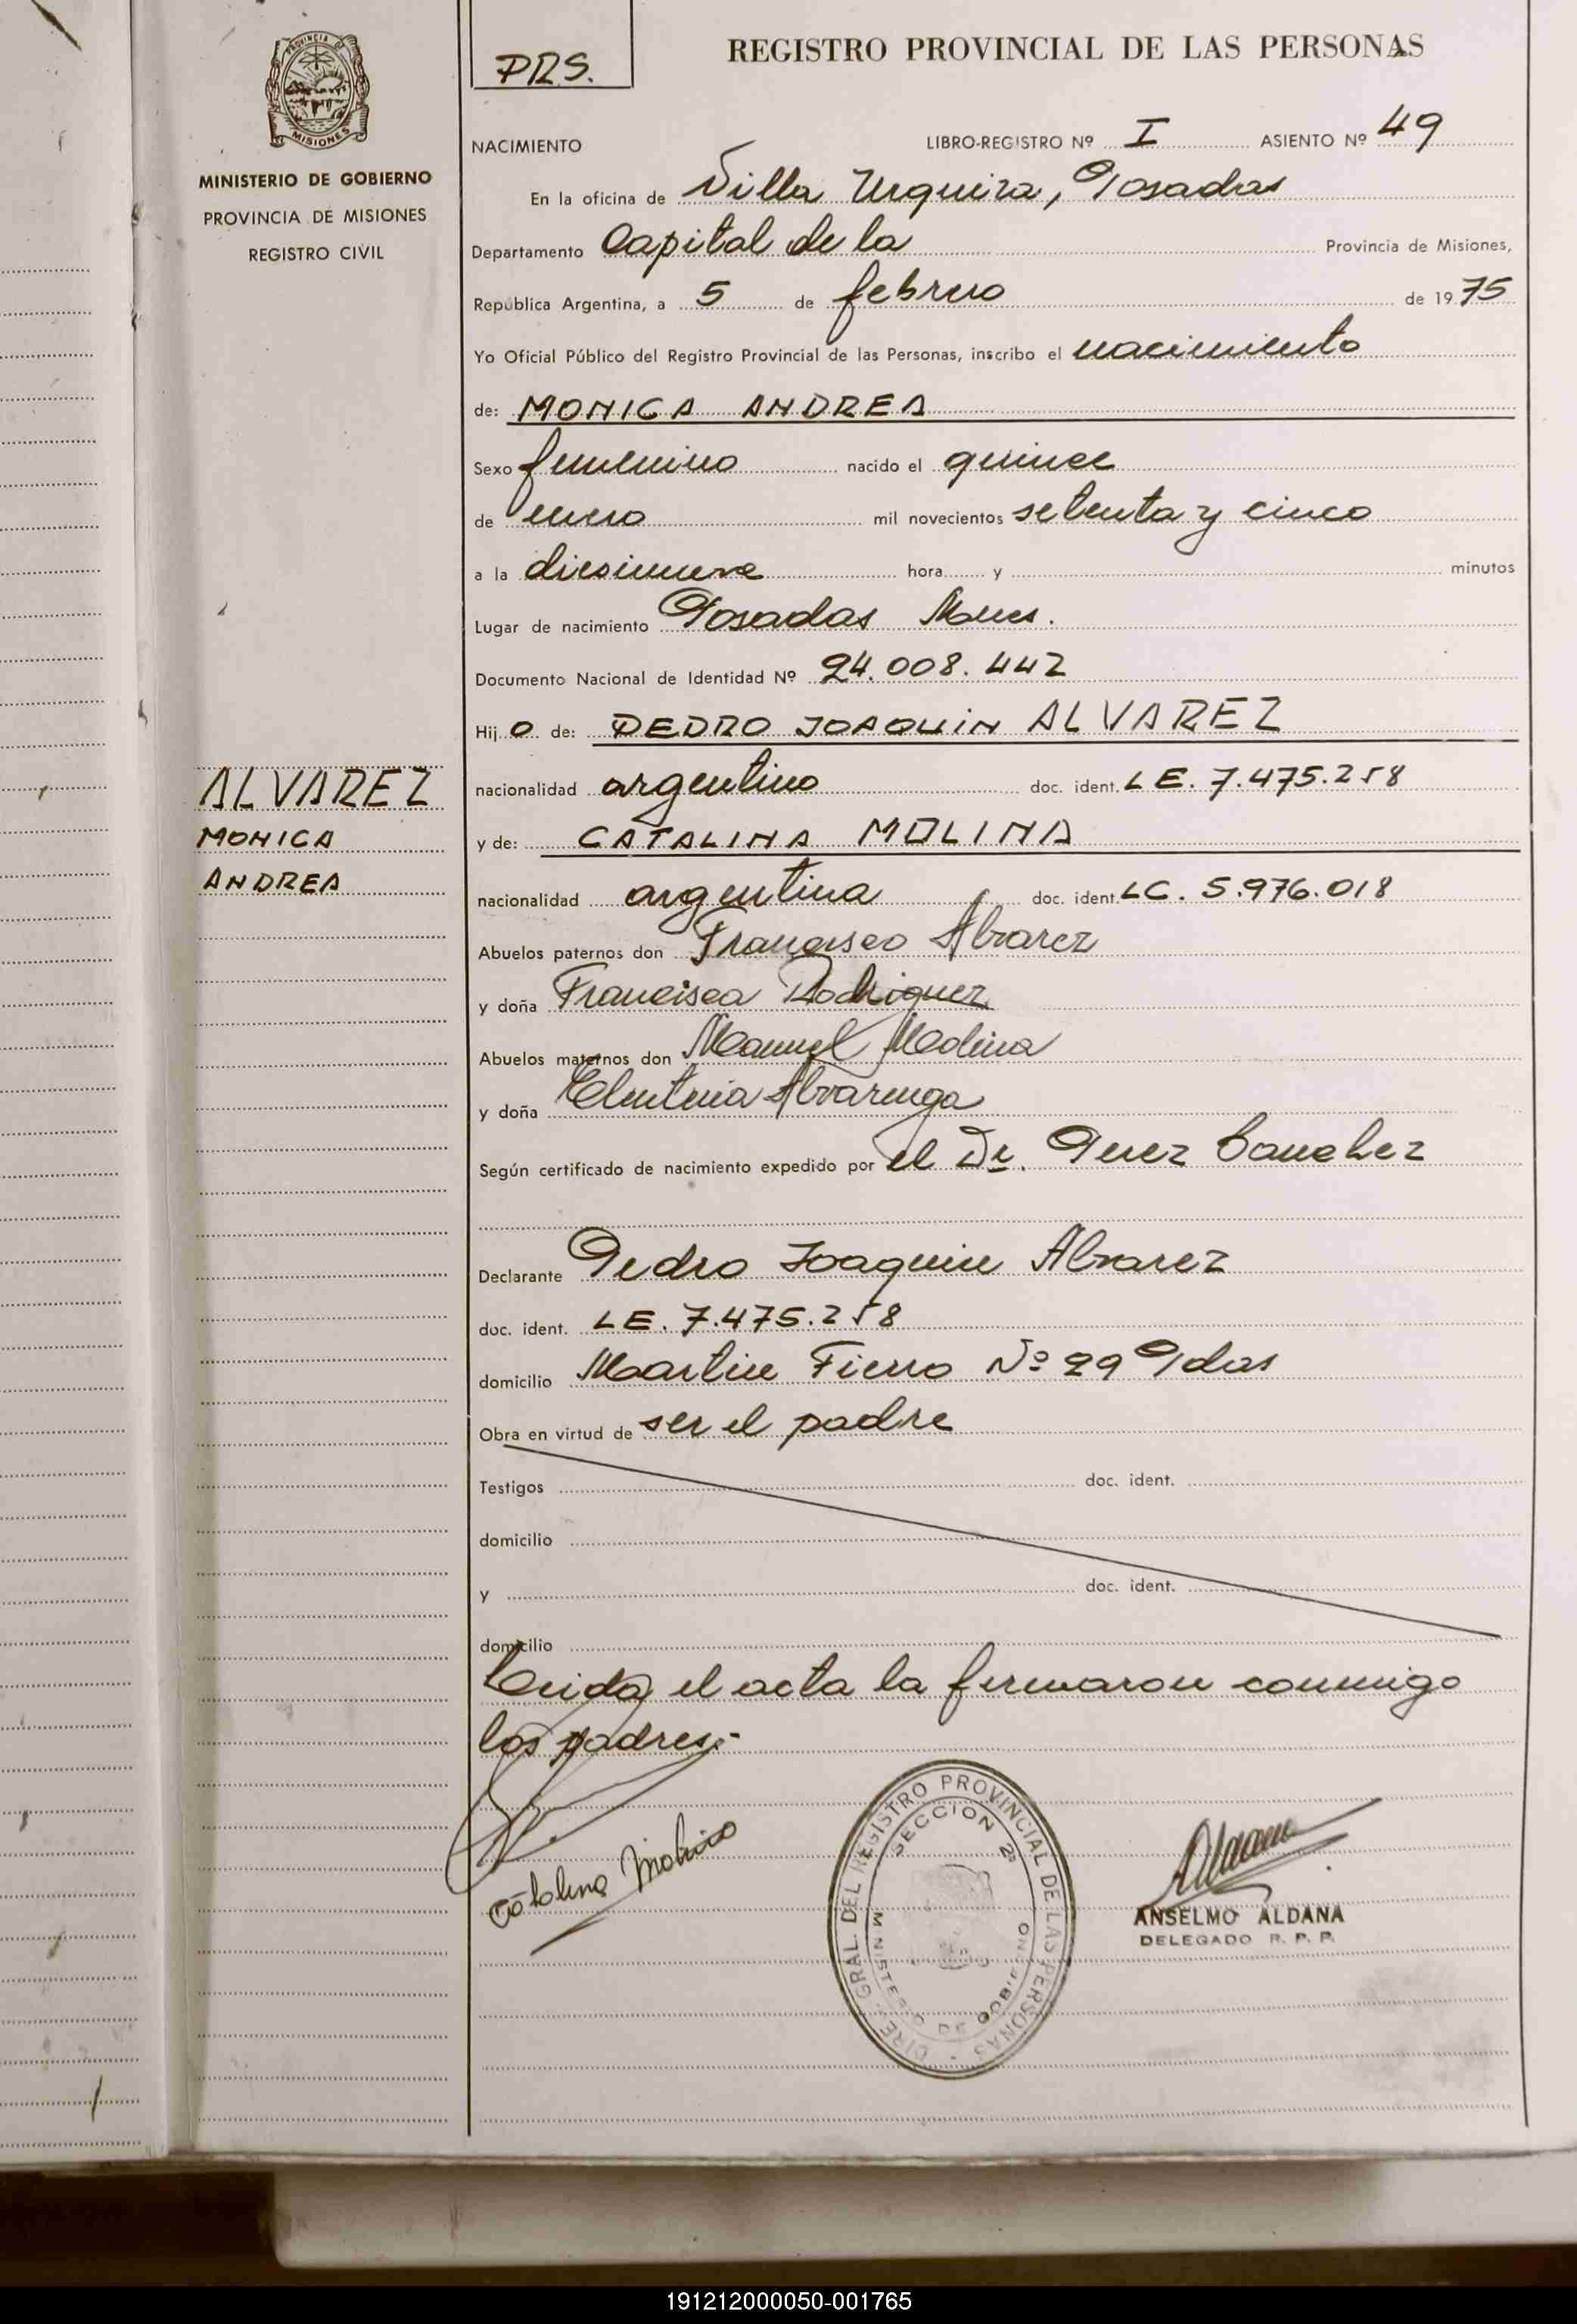 PROVINCIA DE
MISIONES
MINISTERIO DE GOBIERNO
PROVINCIA DE MISIONES
REGISTRO CIVIL
ALVAREZ
MONICA
ANDREA
PRS.
REGISTRO PROVINCIAL DE LAS PERSONAS
NACIMIENTO LIBRO-REGISTRO Nº I ASIENTO Nº 49
En la oficina de Villa Urquiza, Posadas
Departamento Capital de la Provincia de Misiones,
República Argentina, a 5 de febrero de 1975
Yo Oficial Público del Registro Provincial de las Personas, inscribo el nacimiento
de: MONICA ANDREA
Sexo femenino nacido el quince
de enero mil novecientos setenta y cinco
a la diesinueve hora y minutos
Lugar de nacimiento Posadas Mnes.
Documento Nacional de Identidad Nº 24.008.442
Hij o de: PEDRO JOAQUIN ALVAREZ
nacionalidad argentino doc. ident. LE. 7.475.258
y de: CATALINA MOLINA
nacionalidad argentina doc. ident. LC. 5.976.018
Abuelos paternos don Francisco Alvarez
y doña Francisca Rodriguez
Abuelos maternos don Manuel Molina
y doña Eleuteria Alvarenga
Según certificado de nacimiento expedido por el Dr. Perez Sanchez
Declarante Pedro Joaquin Alvarez
doc. ident. LE. 7.475.258
domicilio Martin Fierro Nº 29 Pdas
Obra en virtud de ser el padre
Testigos doc. ident.
domicilio
y doc. ident.
domicilio
Leida el acta la firmaron conmigo
los padres.-
Catalina Molina
DIREC. GRAL. DEL REGISTRO PROVINCIAL DE LAS PERSONAS
SECCION 2ª
MINISTERIO DE GOBIERNO
Aldana
ANSELMO ALDANA
DELEGADO R. P. P.
191212000050-001765